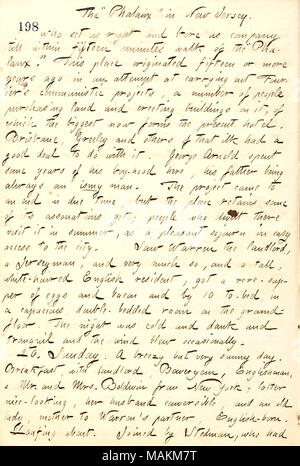 The "Phalanx" in New Jersey.
198
who set us right and bore us company
till within fifteen minutes walk of the "Pha-
lanx." This place originated fifteen or more
years ago in an attempt at carrying out Four-
ier's communistic projects, a number of people
purchasing land and erecting buildings on it, of
which the biggest now forms the present hotel.
Brisbane, Greeley and others of that ilk had a
good deal to do with it. George Arnold spent
some years of his boy-hood here, his father being
always an ismy man. The project came to
an end in due time, but the place retains some
of its associations yet; people who dwelt there
visit it in summer, as a pleasant sojourn in easy
access to the city. Saw Warren the landlord,
a Jerseyman, and very much so, and a tall,
white-haired English resident, got a rere-sup-
per of eggs and bacon and by 10 to-bed in
a capacious double-bedded room on the ground-
floor. The night was cold and dark and
tranquil and the wind blew occasionally.
10. Sunday. A breezy but very sunny day.
Breakfast, with landlord, Englishman,
a Mr. and Mrs. Baldwin from New York; latter
nice-looking, her husband conversible and an old
lady, mother to Warren's partner English-born.
Loafing about. Joined by Stedman, who had
alamy
Image ID: MAKM7T
www.alamy.com